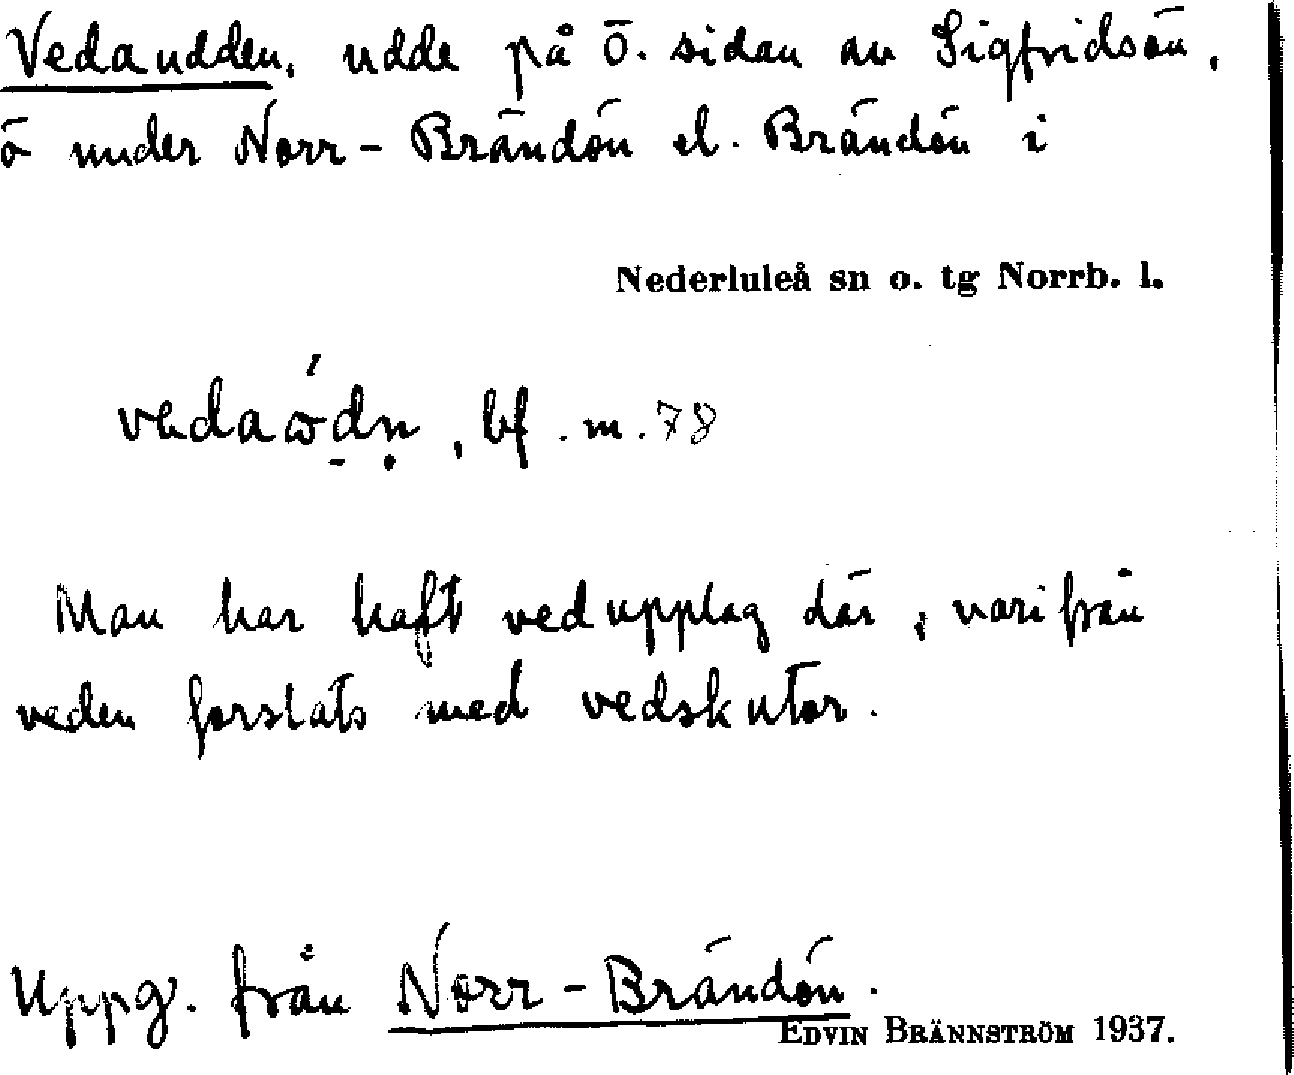 Vedaudden, udde på ö. sidan av Sigfridsön,
ö under Norr-Brändön el. Brändön i
Nederluleå sn o. tg Norrb. l.
bf. m. 78
Man har haft vedupplag där, varifrån
veden forslats med vedskutor.
Uppg. från Norr-Brändön.
EDVIN BRÄNNSTRÖM 1937.